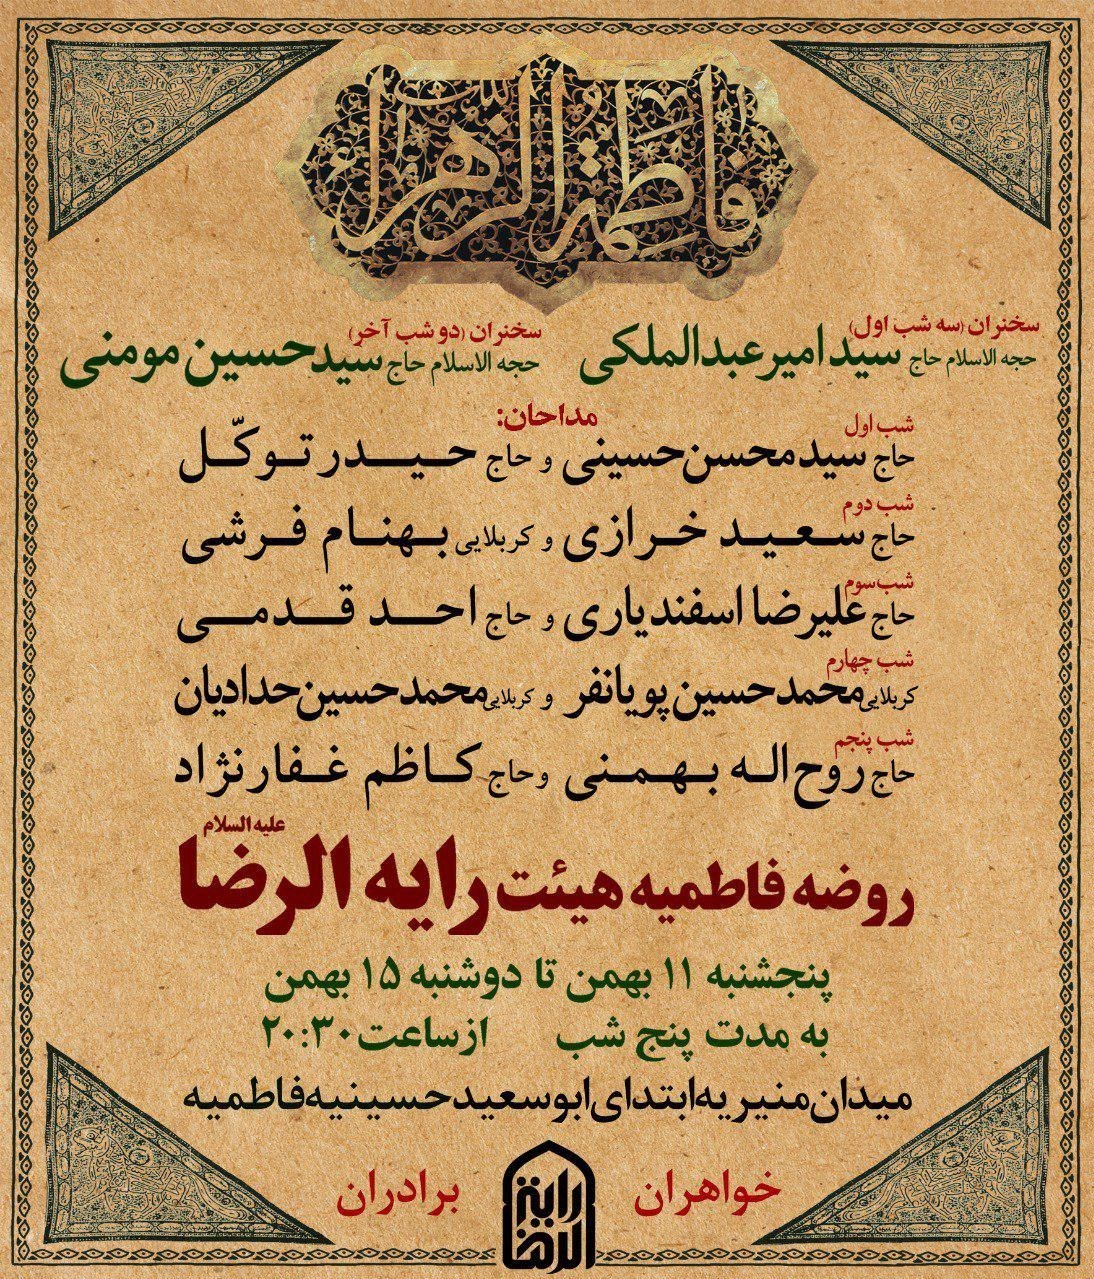 فاطمة الزهراء
سخنران (سه شب اول)
حجه الاسلام حاج سید امیر عبدالملکی
سخنران (دو شب آخر)
حجه الاسلام حاج سید حسین مومنی
مداحان:
شب اول
حاج سید محسن حسینی و حاج حیدر توکّل
شب دوم
حاج سعید خرازی و کربلایی بهنام فرشی
شب سوم
حاج علیرضا اسفندیاری و حاج احد قدمی
شب چهارم
کربلایی محمدحسین پویانفر و کربلایی محمدحسین حدادیان
شب پنجم
حاج روح اله بهمنی و حاج کاظم غفارنژاد
روضه فاطمیه هیئت رایه الرضا علیه السلام
پنجشنبه ۱۱ بهمن تا دوشنبه ۱۵ بهمن
به مدت پنج شب از ساعت ۲۰:۳۰
میدان منیریه ابتدای ابوسعید حسینیه فاطمیه
خواهران برادران
رایة
الرضا